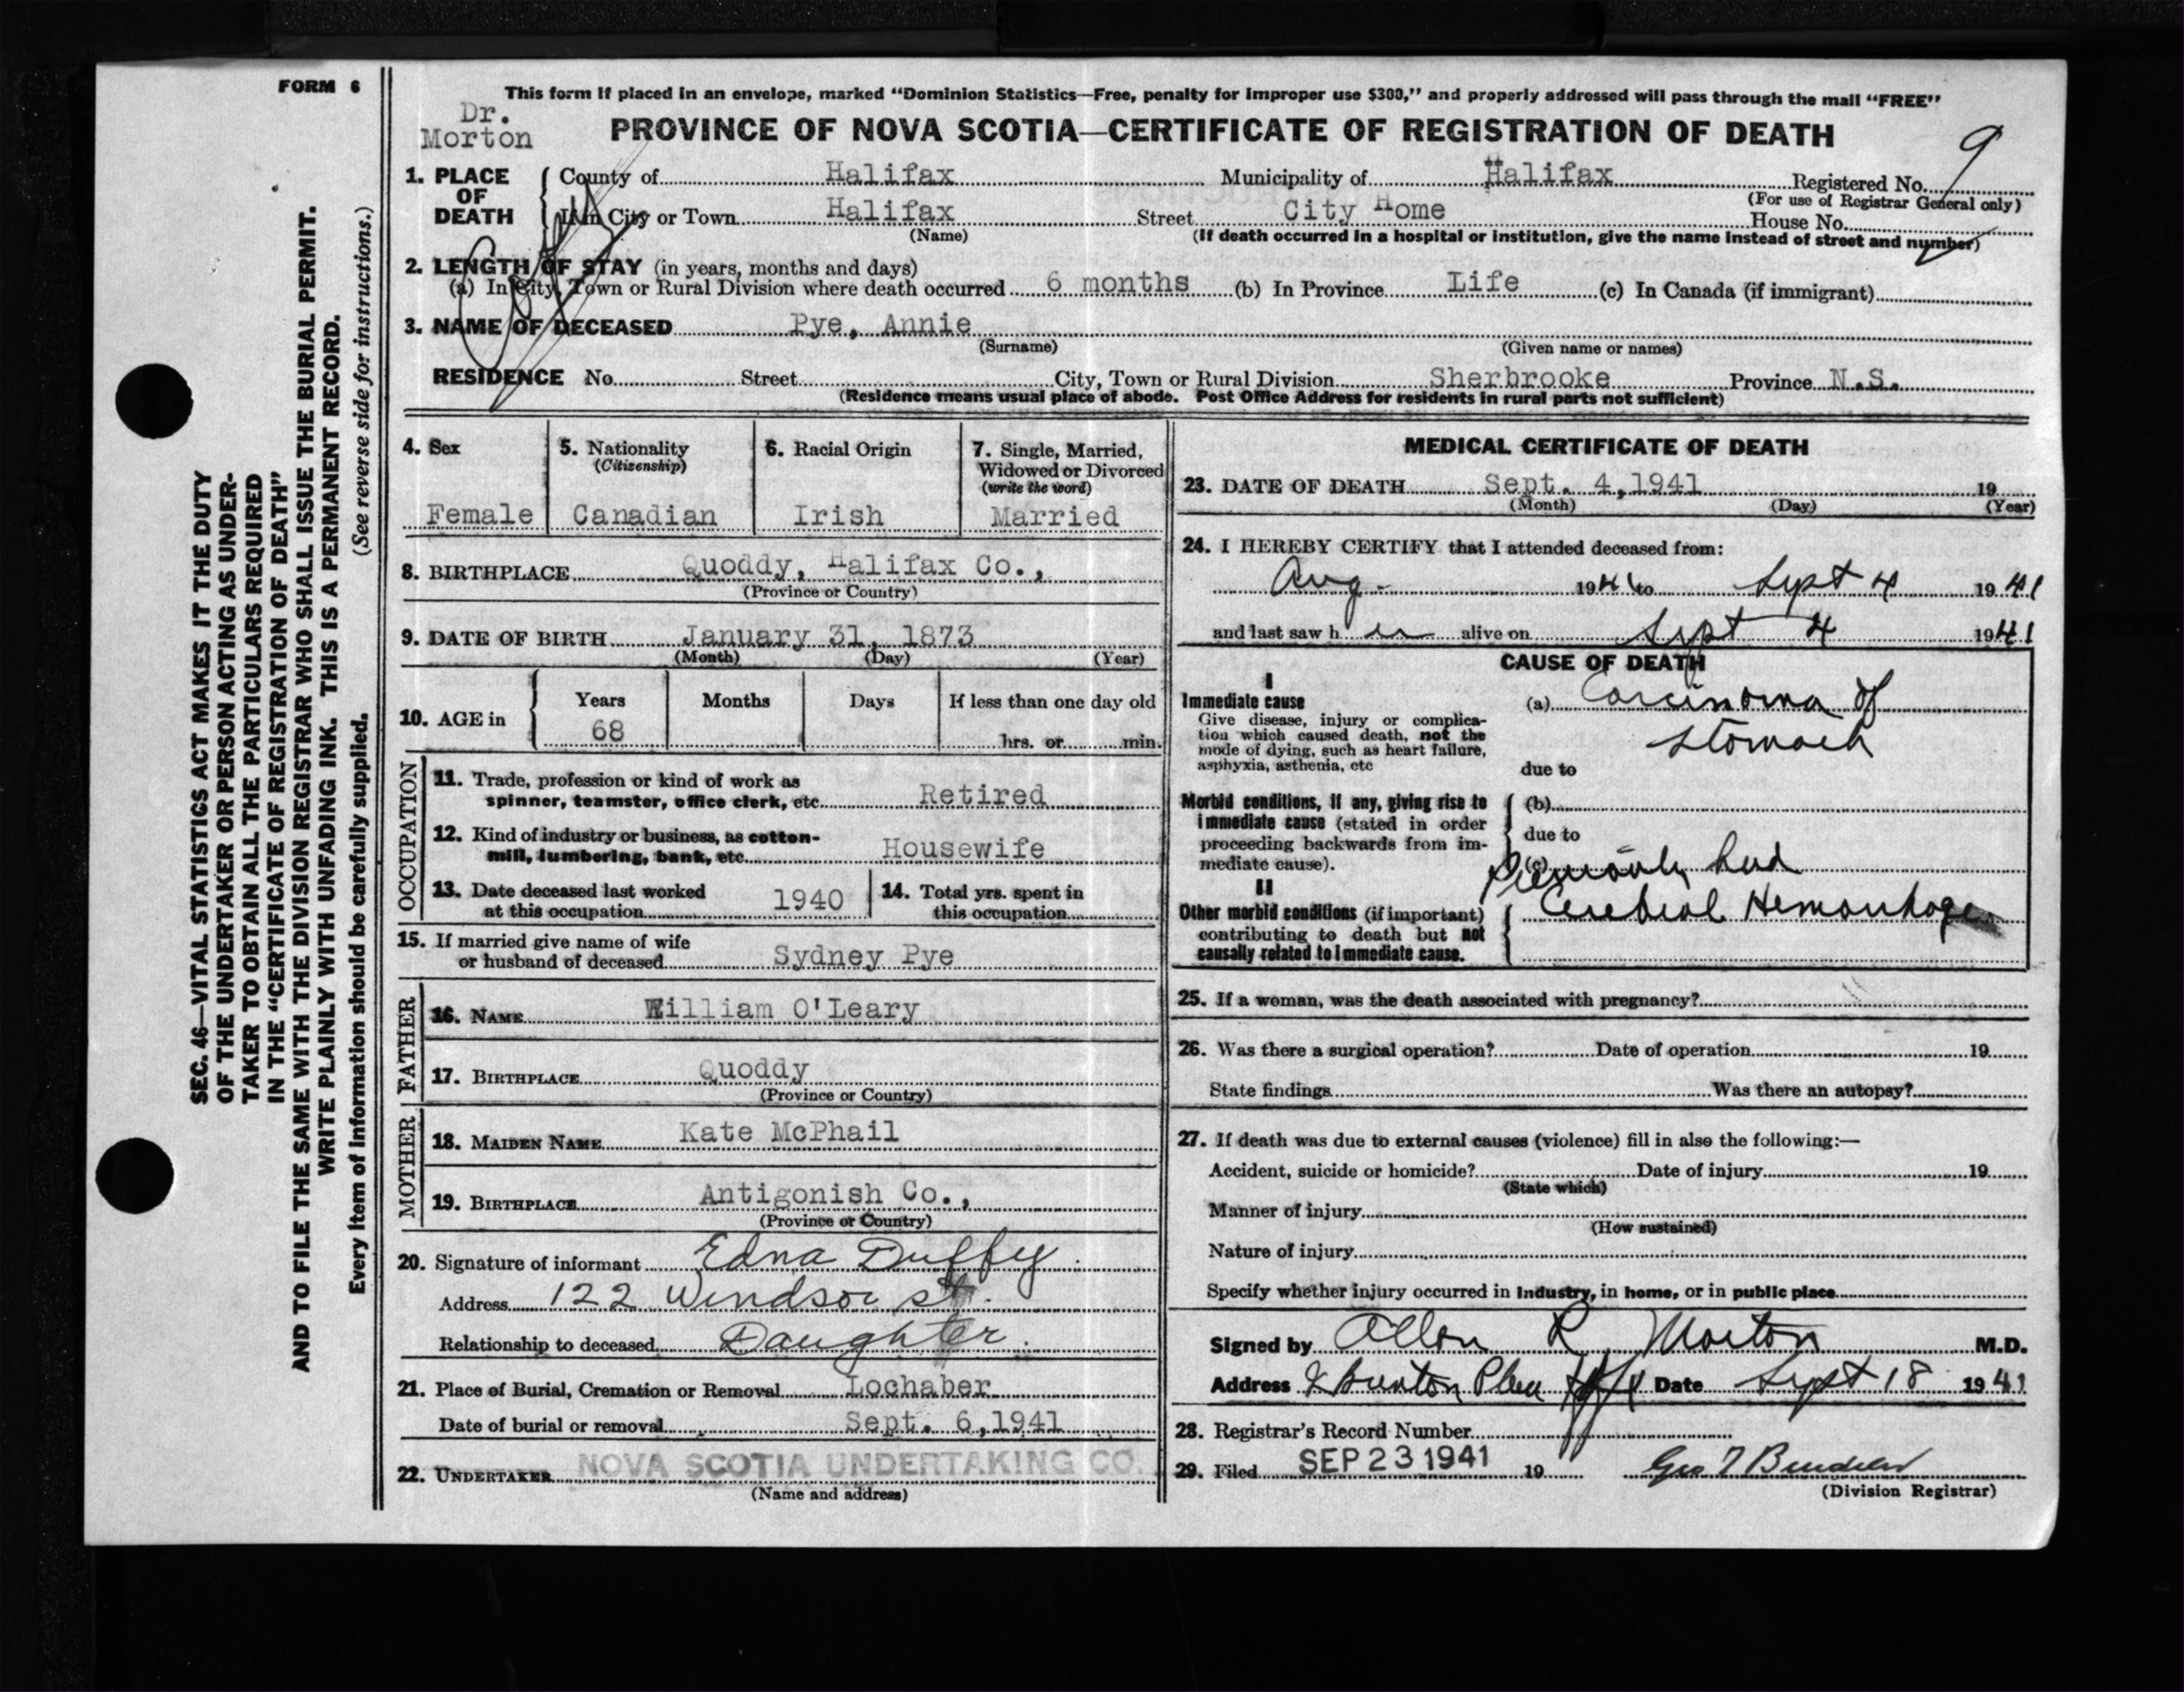 FORM 6
This form if placed in an envelope, marked "Dominion Statistics—Free, penalty for improper use $300," and properly addressed will pass through the mail "FREE"
Dr.
Morton
PROVINCE OF NOVA SCOTIA—CERTIFICATE OF REGISTRATION OF DEATH
9
1. PLACE OF DEATH
County of Halifax Municipality of Halifax Registered No.
(For use of Registrar General only)
If in City or Town Halifax Street City Home House No.
(Name) (If death occurred in a hospital or institution, give the name instead of street and number)
2. LENGTH OF STAY (in years, months and days)
(a) In City, Town or Rural Division where death occurred 6 months (b) In Province Life (c) In Canada (if immigrant)
3. NAME OF DECEASED Pye, Annie
(Surname) (Given name or names)
RESIDENCE No. Street City, Town or Rural Division Sherbrooke Province N.S.
(Residence means usual place of abode. Post Office Address for residents in rural parts not sufficient)
4. Sex
Female
5. Nationality
(Citizenship)
Canadian
6. Racial Origin
Irish
7. Single, Married,
Widowed or Divorced
(write the word)
Married
8. BIRTHPLACE Quoddy, Halifax Co.,
(Province or Country)
9. DATE OF BIRTH January 31, 1873
(Month) (Day) (Year)
10. AGE in
Years Months Days If less than one day old
68 hrs. or min.
OCCUPATION
11. Trade, profession or kind of work as
spinner, teamster, office clerk, etc. Retired
12. Kind of industry or business, as cotton-
mill, lumbering, bank, etc. Housewife
13. Date deceased last worked
at this occupation 1940
14. Total yrs. spent in
this occupation
15. If married give name of wife
or husband of deceased Sydney Pye
FATHER
16. NAME William O'Leary
17. BIRTHPLACE Quoddy
(Province or Country)
MOTHER
18. MAIDEN NAME Kate McPhail
19. BIRTHPLACE Antigonish Co.,
(Province or Country)
20. Signature of informant Edna Duffey
Address 122 Windsor st.
Relationship to deceased Daughter.
21. Place of Burial, Cremation or Removal Lochaber
Date of burial or removal Sept. 6,1941
22. UNDERTAKER NOVA SCOTIA UNDERTAKING CO.
(Name and address)
MEDICAL CERTIFICATE OF DEATH
23. DATE OF DEATH Sept. 4,1941 19
(Month) (Day) (Year)
24. I HEREBY CERTIFY that I attended deceased from:
Aug - 1941 to Sept 4 1941
and last saw h er alive on Sept 4 1941
CAUSE OF DEATH
I
Immediate cause
Give disease, injury or complica-
tion which caused death, not the
mode of dying, such as heart failure,
asphyxia, asthenia, etc
(a) Carcinoma of
stomach
due to
Morbid conditions, if any, giving rise to
immediate cause (stated in order
proceeding backwards from im-
mediate cause).
(b)
due to
(c) had
II
Other morbid conditions (if important)
contributing to death but not
causally related to immediate cause.
Cerebral Hemorrhage
25. If a woman, was the death associated with pregnancy?
26. Was there a surgical operation? Date of operation 19
State findings Was there an autopsy?
27. If death was due to external causes (violence) fill in also the following:—
Accident, suicide or homicide? Date of injury 19
(State which)
Manner of injury
(How sustained)
Nature of injury
Specify whether injury occurred in industry, in home, or in public place
Signed by Allan R Morton M.D.
Address Date Sept 18 1941
28. Registrar's Record Number
29. Filed SEP 23 1941 19
(Division Registrar)
SEC. 46—VITAL STATISTICS ACT MAKES IT THE DUTY
OF THE UNDERTAKER OR PERSON ACTING AS UNDER-
TAKER TO OBTAIN ALL THE PARTICULARS REQUIRED
IN THE "CERTIFICATE OF REGISTRATION OF DEATH"
AND TO FILE THE SAME WITH THE DIVISION REGISTRAR WHO SHALL ISSUE THE BURIAL PERMIT.
WRITE PLAINLY WITH UNFADING INK. THIS IS A PERMANENT RECORD.
Every item of information should be carefully supplied. (See reverse side for instructions.)